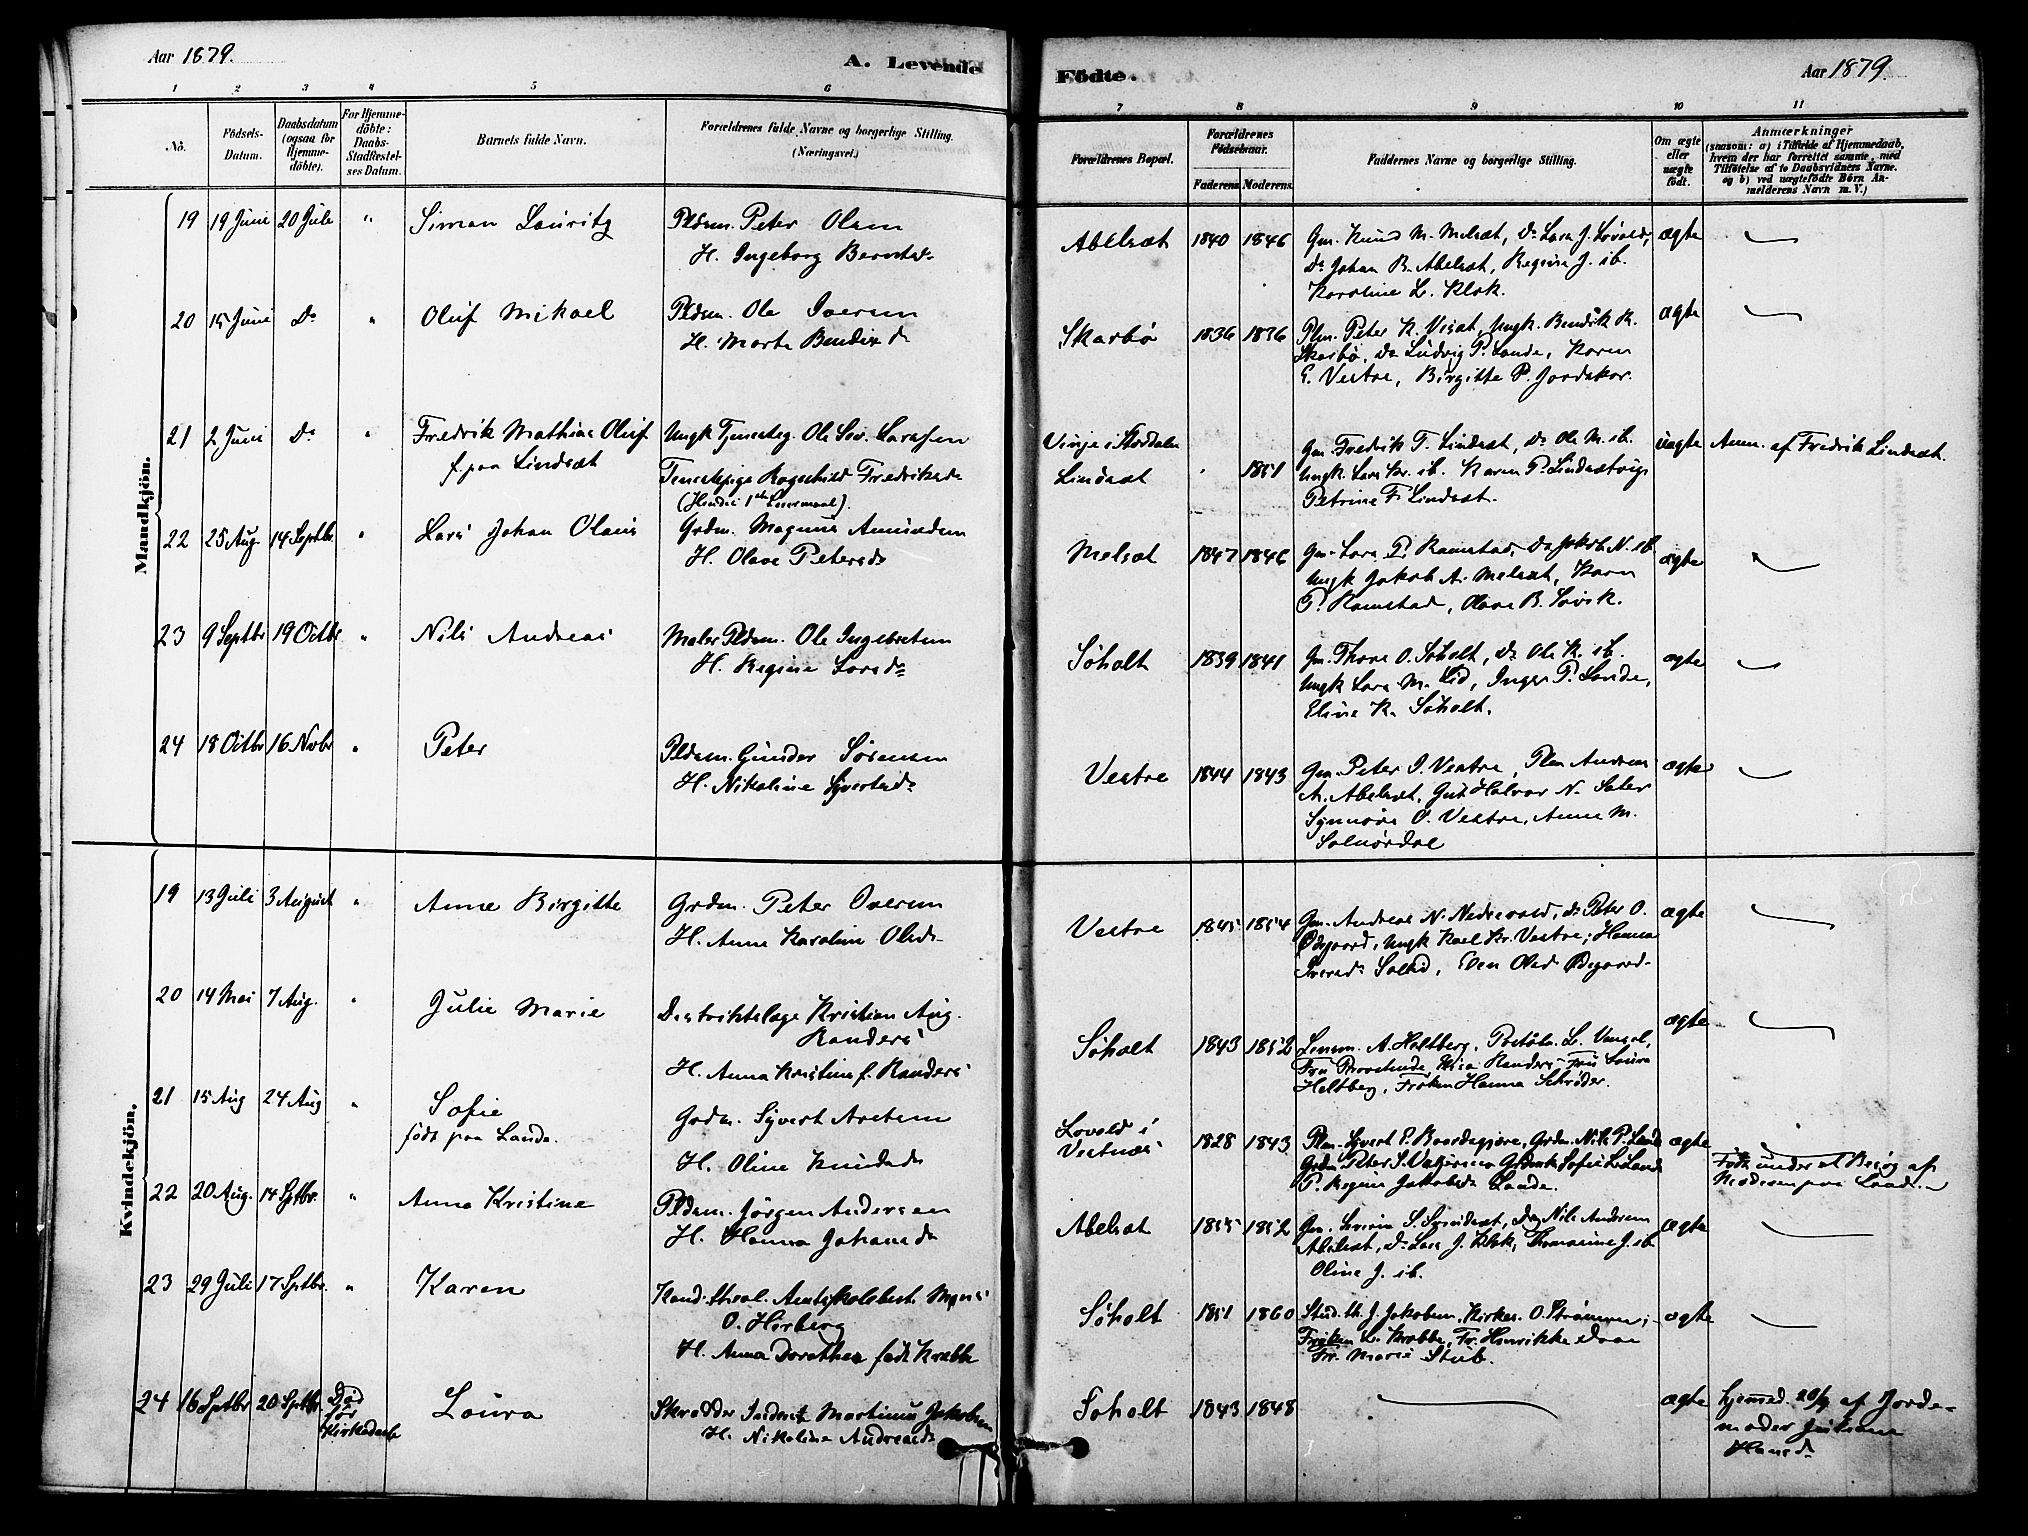 Aar 1879.
A. Levende
Födte.
Aar 1879.
1 2 3 4 5 6 7 8 9 10 11
Nö.
Födsels-
Datum.
Daabsdatum
(ogsaa for
Hjemme-
döbte).
For Hjemme-
döbte:
Daabs-
Stadfestel-
ses Datum.
Barnets fulde Navn.
Forældrenes fulde Navne og borgerlige Stilling.
(Næringsvei.)
Forældrenes Bopæl.
Forældrenes
Födselsaar.
Faderens. Moderens.
Faddernes Navne og borgerlige Stilling.
Om ægte
eller
uægte
födt.
Anmærkninger
(saasom: a) i Tilfælde af Hjemmedaab,
hvem der har forrettet samme, med
Tilföielse af to Daabsvidners Navne.
og b) ved uægtefödte Börn An-
melderens Navn m. V.)
Mandkjön.
19 19 Juni 20 Juli " Simon Lauritz Pldsm. Peter Olsen
H. Ingeborg Berntsd.
Abelsæt 1840 1846 Gm. Knud M. Melsæt, Do Lars J. Lövold,
Do Johan B. Abelsæt, Regine J. ib.
Karoline L. Klok.
ægte
20 15 Juni Do " Oluf Mikael Pldsm. Ole Iversen
H. Marte Bendix d
Skarbö 1836 1836 Plm. Peter K. Visæt, Ungk. Bendik K.
Skarbö, Do Ludvig P. Lande, Karen
E. Vestre, Birgitte P. Jordskar.
ægte
21 2 Juni Do " Fredrik Mathias Oluf
f. paa Lindsæt
Ungk Tjenesteg. Ole Sev. Larssen
Tjenestepige Ragnhild Fredriksd.
(Hendes 1ste Leiermaal).
Vinje i Stordalen
Lindsæt 1851
Gm. Fredrik T. Lindsæt, Do Ole M. ib.
Ungk Lars Kr. ib. Karen P. Lindsætvig
Petrine F. Lindsæt.
uægte Anm. af Fredrik Lindsæt.
22 25 Aug. 14 Septbr. " Lars Johan Olaus Grdm. Magnus Amundsen
H. Olave Petersd.
Melsæt 1847 1846 Gm. Lars P. Ramstad, Do Jakob N. ib.
Ungk Jakob A. Melsæt, Karen
P. Ramstad, Olave B. Lövik.
ægte
23 9 Septbr 19 Octbr " Nils Andreas Maler Pldsm. Ole Ingebretsen
H. Regine Larsd.
Söholt 1839 1841 Gm. Thore O. Söholt, Do Ole K. ib.
Ungk Lars M. Lid, Inger P. Lande,
Eline K. Söholt.
ægte
24 18 Octbr 16 Novbr " Peter Pldsm. Gunder Sörensen
H. Nikoline Syvertsd.
Vestre 1844 1843 Gm. Peter I. Vestre, Plm Andreas
A. Abelsæt, Gut Halvor N. Sæter
Synnöve O. Vestre, Anne M.
Solnördal
ægte
Kvindekjön.
19 13 Juli 3 August " Anne Birgitte Grdm. Peter Iversen
H. Anne Karoline Olsd.
Vestre 1845 1854 Gm. Andreas N. Nedrevold, do Peter O.
Ödegaard, Ungk Karl Kr. Vestre, Hansa
Iversd. Sollid, Elen Olsd Ödegaard.
ægte
20 14 Mai 7 Aug. " Julie Marie Districtslæge Kristian Aug.
Randers
H. Anna Kristine f. Randers
Söholt 1843 1852 Lensm. A. Heltberg, L.
Fru Kisa Randers, Fru Laura
Heltberg, Fröken Hanna Schröder.
ægte
21 15 Aug 24 Aug " Sofie
födt paa Lande.
Grdm. Syvert Aretsen
H. Oline Knudsd.
Lövold i
Vestnæs 1828 1843
Plm. Syvert P. Grdm. Nils P. Lande
Grdm Peter S. Sofie L. Lande
P. Regine Jakobsd. Lande.
ægte
Födt under et Besög af
Moderen paa Lande.
22 20 Aug. 14 Sptbr. " Anna Kristine Pldsm. Jörgen Andersen
H. Hanna Johansd.
Abelsæt 1855 1852 Gm. Do Nils Andersen
Abelsæt, Do Lars J. Klok, Thomasine J. ib.
Oline J. ib.
ægte
23 29 Juli 17 Sptbr. " Karen Kand. theol. Amtsskolebest. Mons
O. Hörberg
H. Anna Dorothea födt Krabbe
Söholt 1851 1860 Stud. th. J. Jakobsen, Kirkes. O. Strömmen,
Fröken L. Krabbe, Fr. Henrikke Daae
Fr. Marie Stub.
ægte
24 16 Sptbr 20 Sptbr. Död
för
Kirkedaab
Laura Skrædder Martinus Jakobsen
H. Nikoline Andreasd.
Söholt 1843 1848
ægte hjemmed. 20/9 af Jorde-
moder Juliane
Hansd.